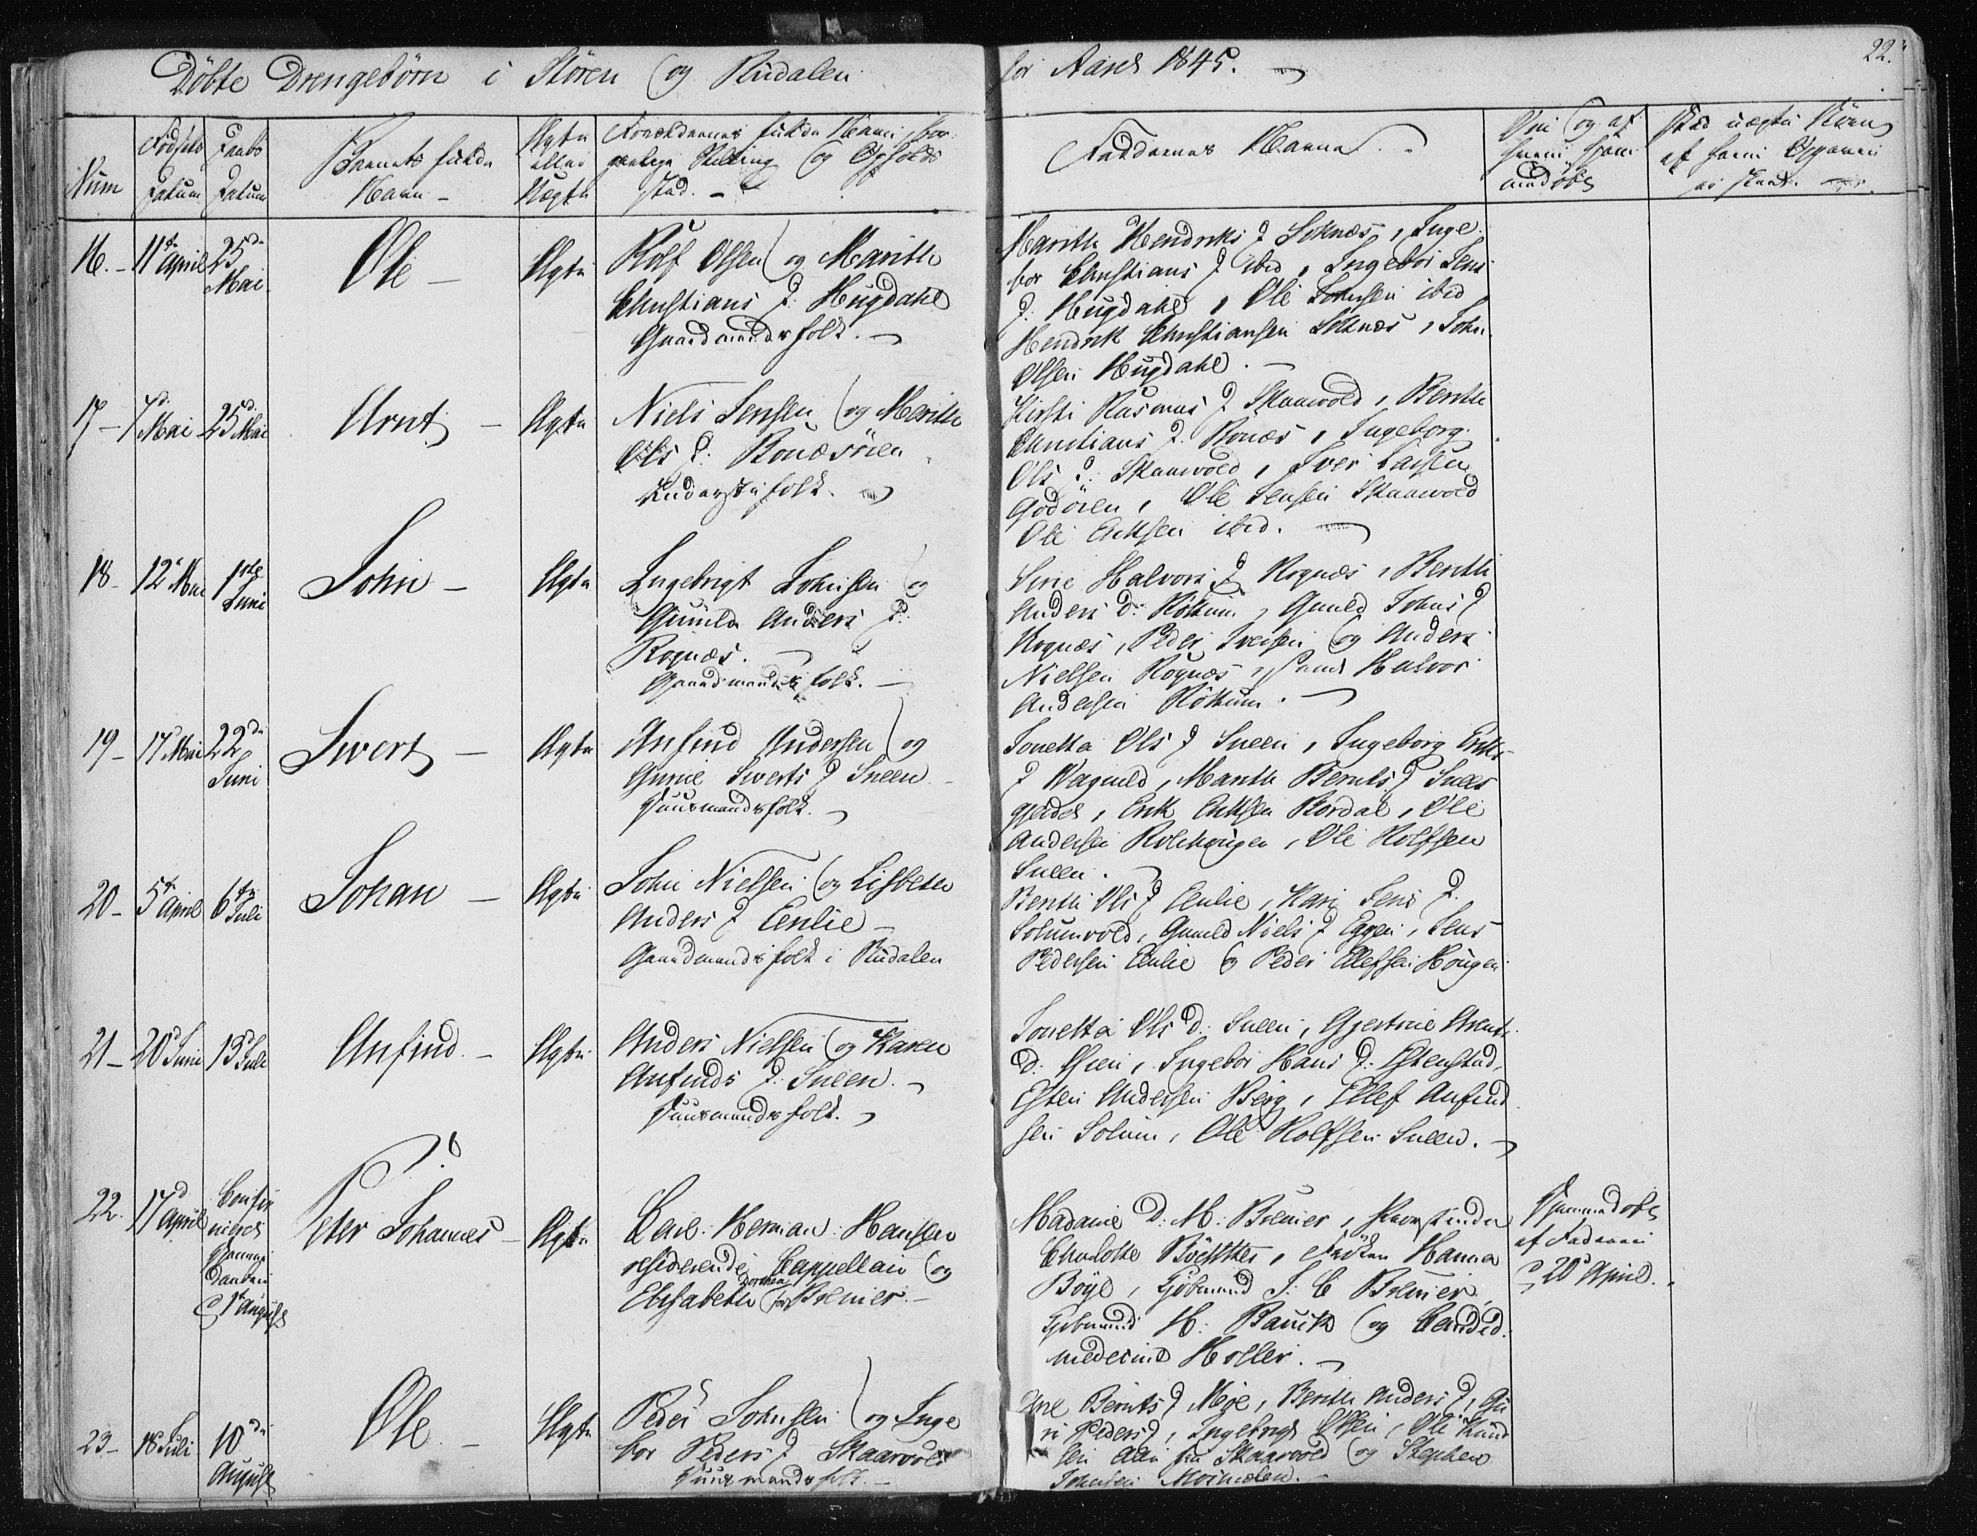 Døbte Drengebørn i Støren og Budalen for Aaret 1845.
22.
Num
Fødsels Datum
Daabs Datum
Barnets fulde Navn
Ægte eller Uægte
Forældrenes fulde Navne, bor-
gerlige Stilling og Opholds
sted.
Faddernes Navne.
Om og af
hvem hjem
medøbt
16. 11te April 25de Mai
Ole
Ægte
Rolf Olsen og Marith
Christians D. Hugdahl
Gaardmandsfolk.
Marith Hendriks D Soknæs, Inge-
bor Christians D ibid, Ingebor Jens
D: Hugdahl, Ole Johnsen ibid
Hendrik Christiansen Soknæs, John
Olsen Hugdahl.
17 7d Mai 25d Mai
Arnt
Ægte
Niels Jensen og Merith
Ols D: Bonæsøien
Inderstefolk.
Kirsti Rasmus D Skaarvold, Berith
Christians D. Bonæs, Ingeborg
Ols D: Skaarvold, Iver Larsen
Godøien, Ole Jensen Skaarvold
Ole Eriksen ibid.
18 12 Mai 1ste Juni
John
Ægte
Ingebrigt Johnsen og
Gunild Anders D:
Rognæs.
Gaardmandsfolk.
Sirie Halvors D Rognæs, Berith
Anders D: Røttum, Guneld Johns D
Rognæs, Peder Iversen og Anders
Nielsen Rognæs, samt Halvor
Andersen Røttum.
19 17 Mai 22de Juni
Sivert
Ægte
Anfind Andersen og
Gurie Siverts D Sneen
Huusmandsfolk.
Jonetta Ols D Sneen, Ingeborg Eriks
D Vagnild, Marith Bernts D Snees
gjerdet, Erik Eriksen Bordal, Ole
Andersen Rolehougen, Ole Rolfsen
Sneen.
20 5te April 6te Juli
Johan
Ægte
John Nielsen og Lisbeth
Anders D Enlie
Gaardmandsfolk i Budalen
Berith Ols D Enlie, Kari Jens D.
Solumvold, Guneld Niels D Eggen, Jens
Pedersen Enlie og Peder Ellefsen Hougen
21 20d Juni 13d Juli
Anfind
Ægte
Anders Nielsen og Karen
Anfinds D. Sneen.
Huusmandsfolk.
Jonetta Ols D: Sneen, Gjertrue Arents
D: Øien, Ingebor Hans D: Estenstad,
Esten Andersen Berg, Ellef Anfind
sen Solum, Ole Rolfsen Sneen.
22. 17d April
Hjemme
Daaben
1te August
Peter Johannes
Ægte
Carl Herman Hanssen
residerende Cappellan og
Elisabeth Dorthea fød Bremer.
Madame D. M. Bremer,
Charlotte Hanna
Bøye, Kjøbmand J. C Bremer,
Kjøbmand H. Bauck og Candid.
medicine Holler.
Hjemmedøbt
af Faderen
20d April.
23 18 Juli 10de August
Ole
Ægte
Peder Johnsen og Inge
bor Peders D Skaarvold
Huusmandsfolk.
Ane Bernts D Moe, Berith Anders D, Gu
ri Peders D, Ingebrigt Olsen, Ole Knud
sen alle fra Skaarvold og Stephen
Johnsen Moemælen.